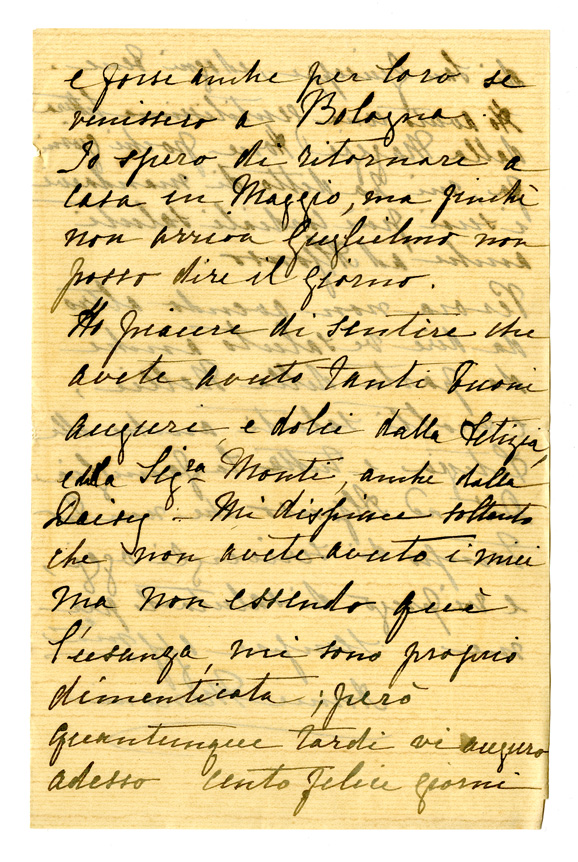 e forse anche per loro se
venissero a Bologna.
Io spero di ritornare a
casa in Maggio, ma finchè
non arriva Guglielmo non
posso dire il giorno.
Ho piacere di sentire che
avete avuto tanti buoni
auguri, e dolci dalla Letizia,
e dalla Sigra Monti, anche dalla
Daisy - Mi dispiace soltanto
che non avete avuto i miei
ma non essendo quì
l'usanza, mi sono proprio
dimenticata; però
quantunque tardi vi auguro
adesso cento felice giorni